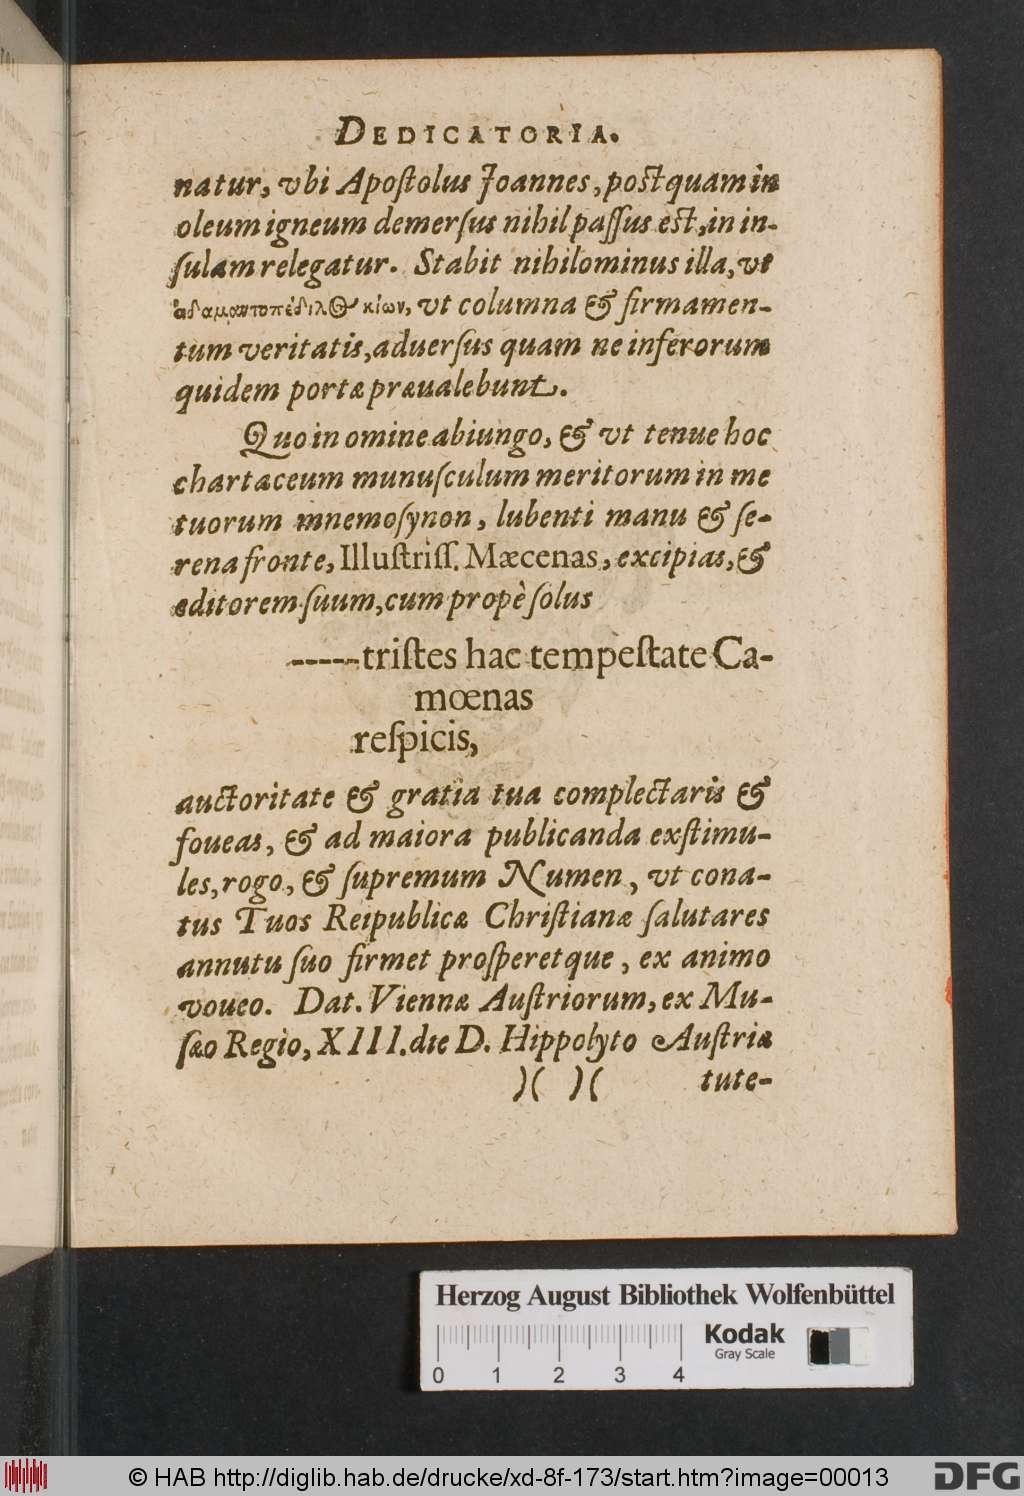 DEDICATORIA.
natur, vbi Apoſtolus Joannes, postquam in
oleum igneum demerſus nihil paſſus est, in in-
ſulam relegatur. Stabit nihilominus illa, vt
ἀδαμαντοπέδιλος κίων, vt columna & firmamen-
tum veritatis, aduerſus quam ne inferorum
quidem portæ præualebunt.
Quo in omine abiungo, & vt tenue hoc
chartaceum munuſculum meritorum in me
tuorum mnemoſynon, lubenti manu & ſe-
rena fronte, Illuſtriſſ. Mæcenas, excipias, &
editorem ſuum, cum propè ſolus
-----triſtes hac tempeſtate Ca-
mœnas
reſpicis,
auctoritate & gratia tua complectaris &
foueas, & ad maiora publicanda exſtimu-
les, rogo, & ſupremum Numen, vt cona-
tus Tuos Reipublicæ Chriſtianæ ſalutares
annutu ſuo firmet proſperetque, ex animo
voueo. Dat. Viennæ Auſtriorum, ex Mu-
ſæo Regio, XIII. die D. Hippolyto Auſtriæ
)( )( tute-
Herzog August Bibliothek Wolfenbüttel
Kodak
Gray Scale
0 1 2 3 4
© HAB http://diglib.hab.de/drucke/xd-8f-173/start.htm?image=00013
DFG